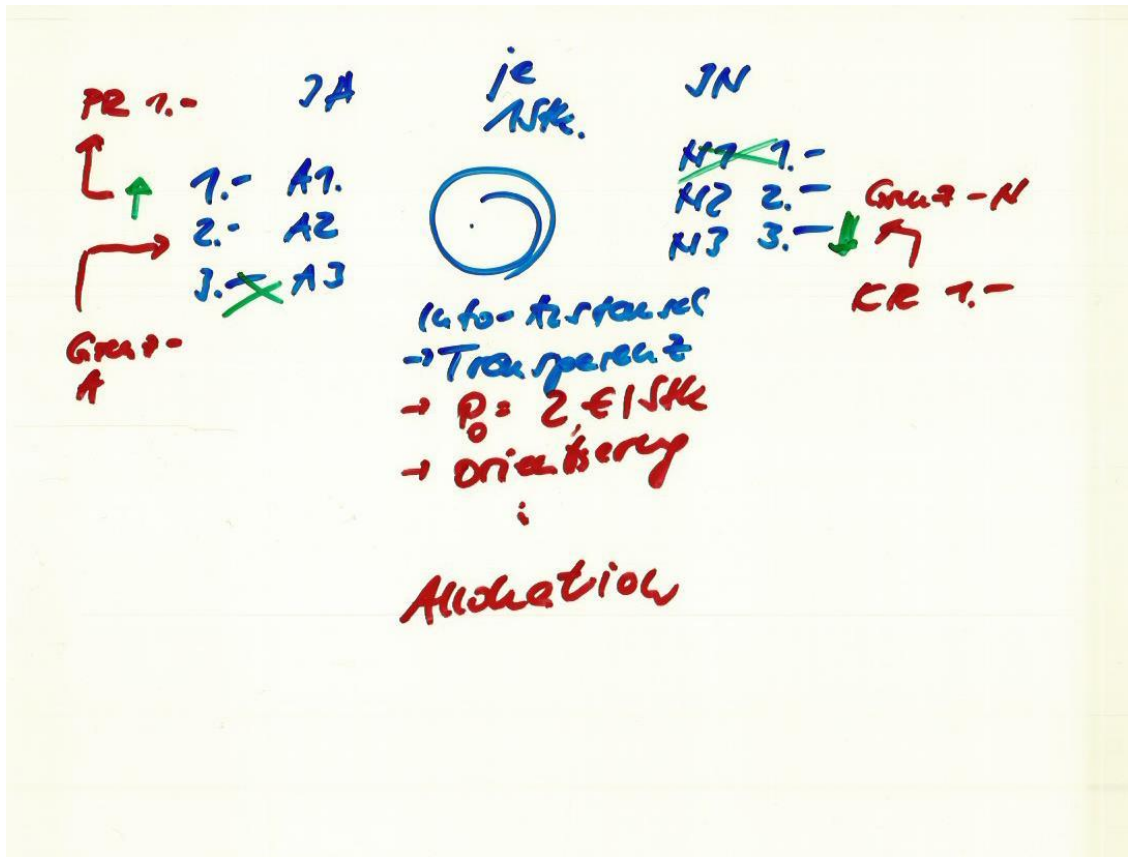 PR 1.-
JA
je
1 Stk.
JN
1.- A1.
2.- A2
3.- A3
N1 1.-
N2 2.-
N3 3.-
Grenz-N
KR 1.-
Grenz-
A
Info-Austausch
→ Transparenz
→ P₀ = 2,€/Stk
→ Orientierung
:
Allokation